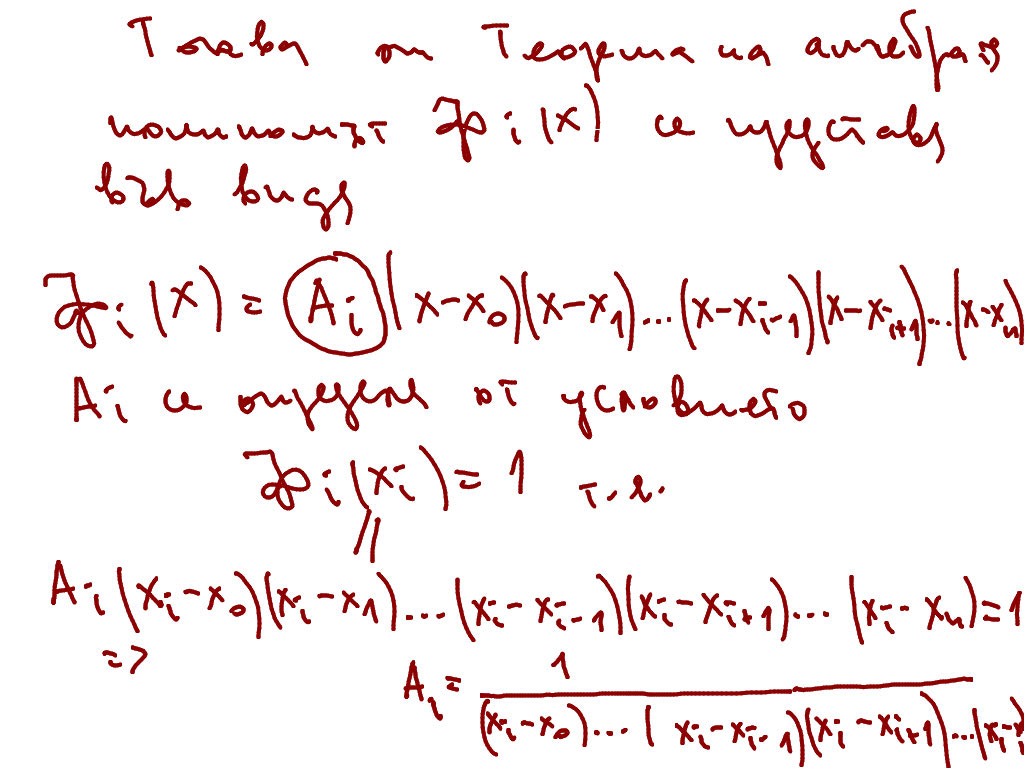 Тогава от Теорема на алгебрата,
полиномът φ_i(x) се представя
във вида
φ_i(x) = A_i (x-x_0)(x-x_1)...(x-x_{i-1})(x-x_{i+1})...(x-x_n)
A_i се определя от условието
φ_i(x_i) = 1 т.е.
"
A_i (x_i-x_0)(x_i-x_1)....(x_i-x_{i-1})(x_i-x_{i+1})... (x_i-x_n)=1
=> A_i = 1
(x_i-x_0)...(x_i-x_{i-1})(x_i-x_{i+1})...(x_i-x